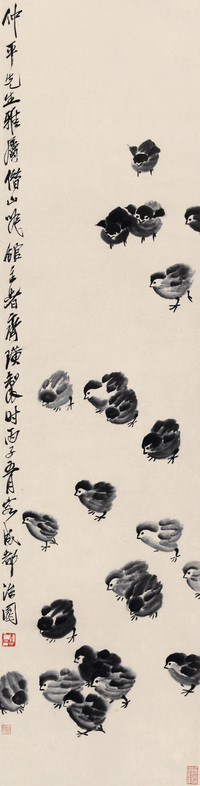 仲平先生雅属借山吟馆主者齐璜制时丙子五月客成都治园